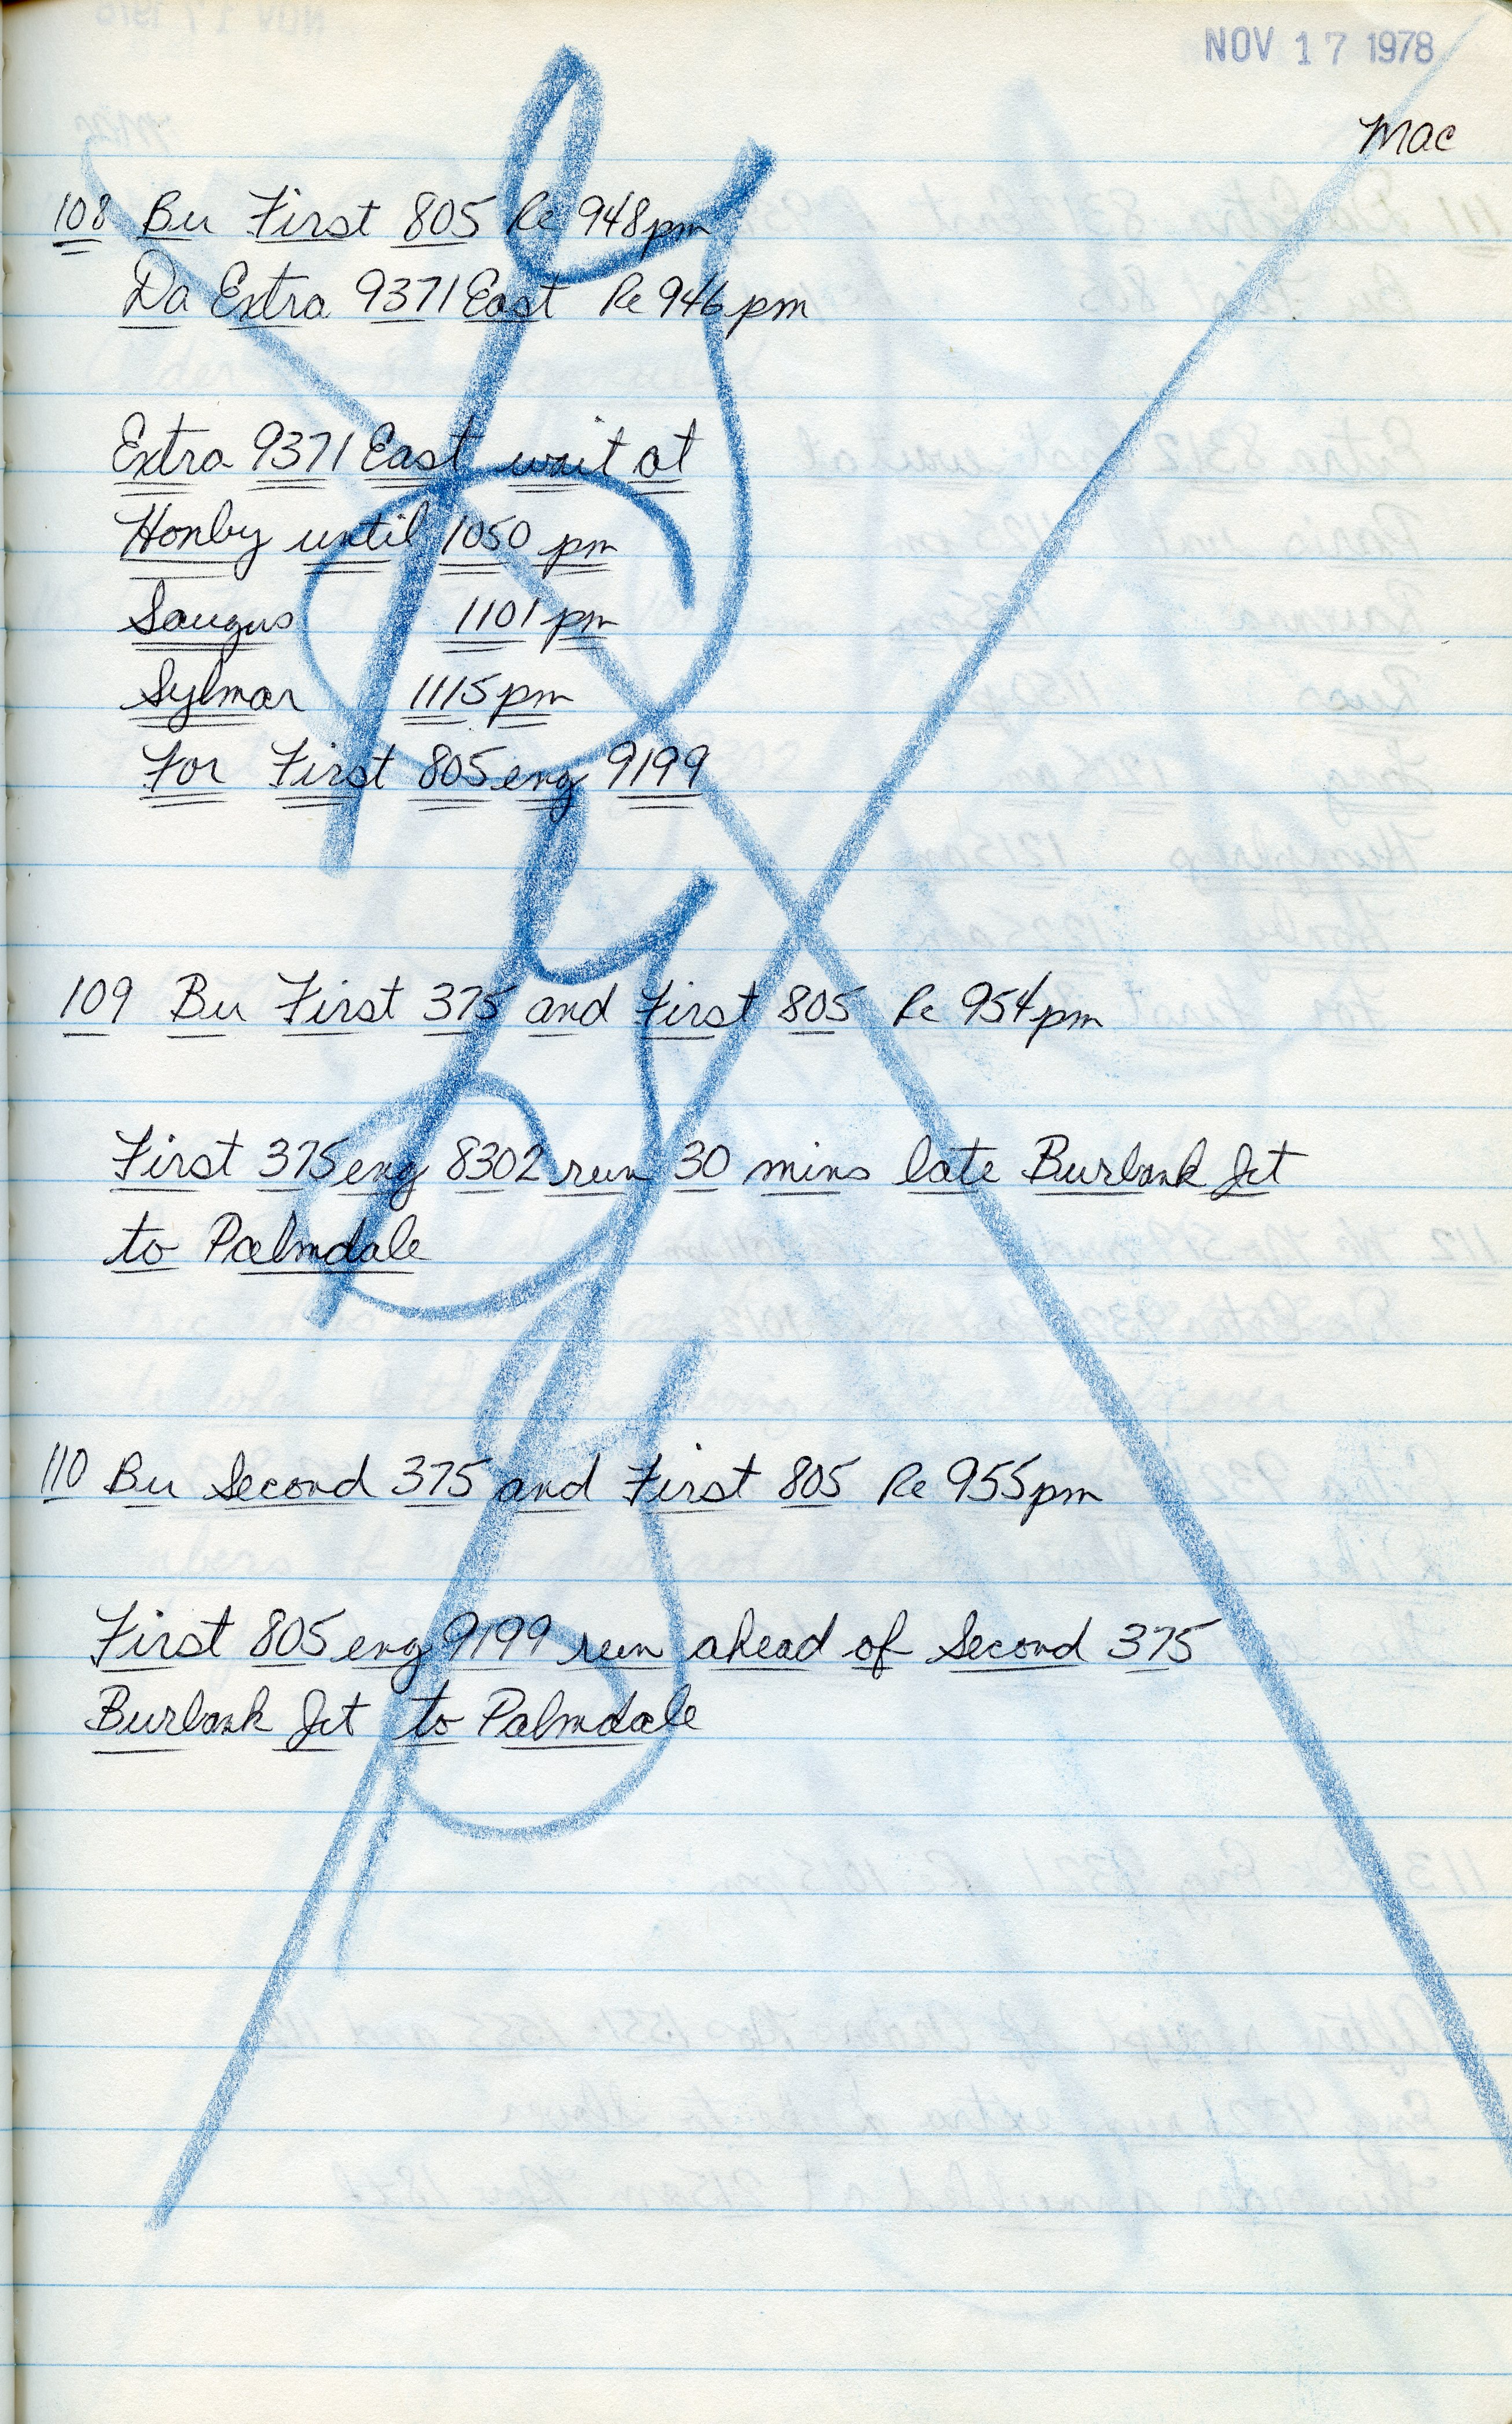 NOV 17 1978
Mac
108 Bu First 805 Re 948pm
Da Extra 9371 East Re 946pm
Extra 9371 East wait at
Honby until 1050 pm
Saugus 1101 pm
Sylmar 1115 pm
For First 805 eng 9199
109 Bu First 375 and First 805 Re 954pm
First 375 eng 8302 run 30 mins late Burbank Jct
to Palmdale
110 Bu Second 375 and First 805 Re 955pm
First 805 eng 9199 run ahead of Second 375
Burbank Jct to Palmdale